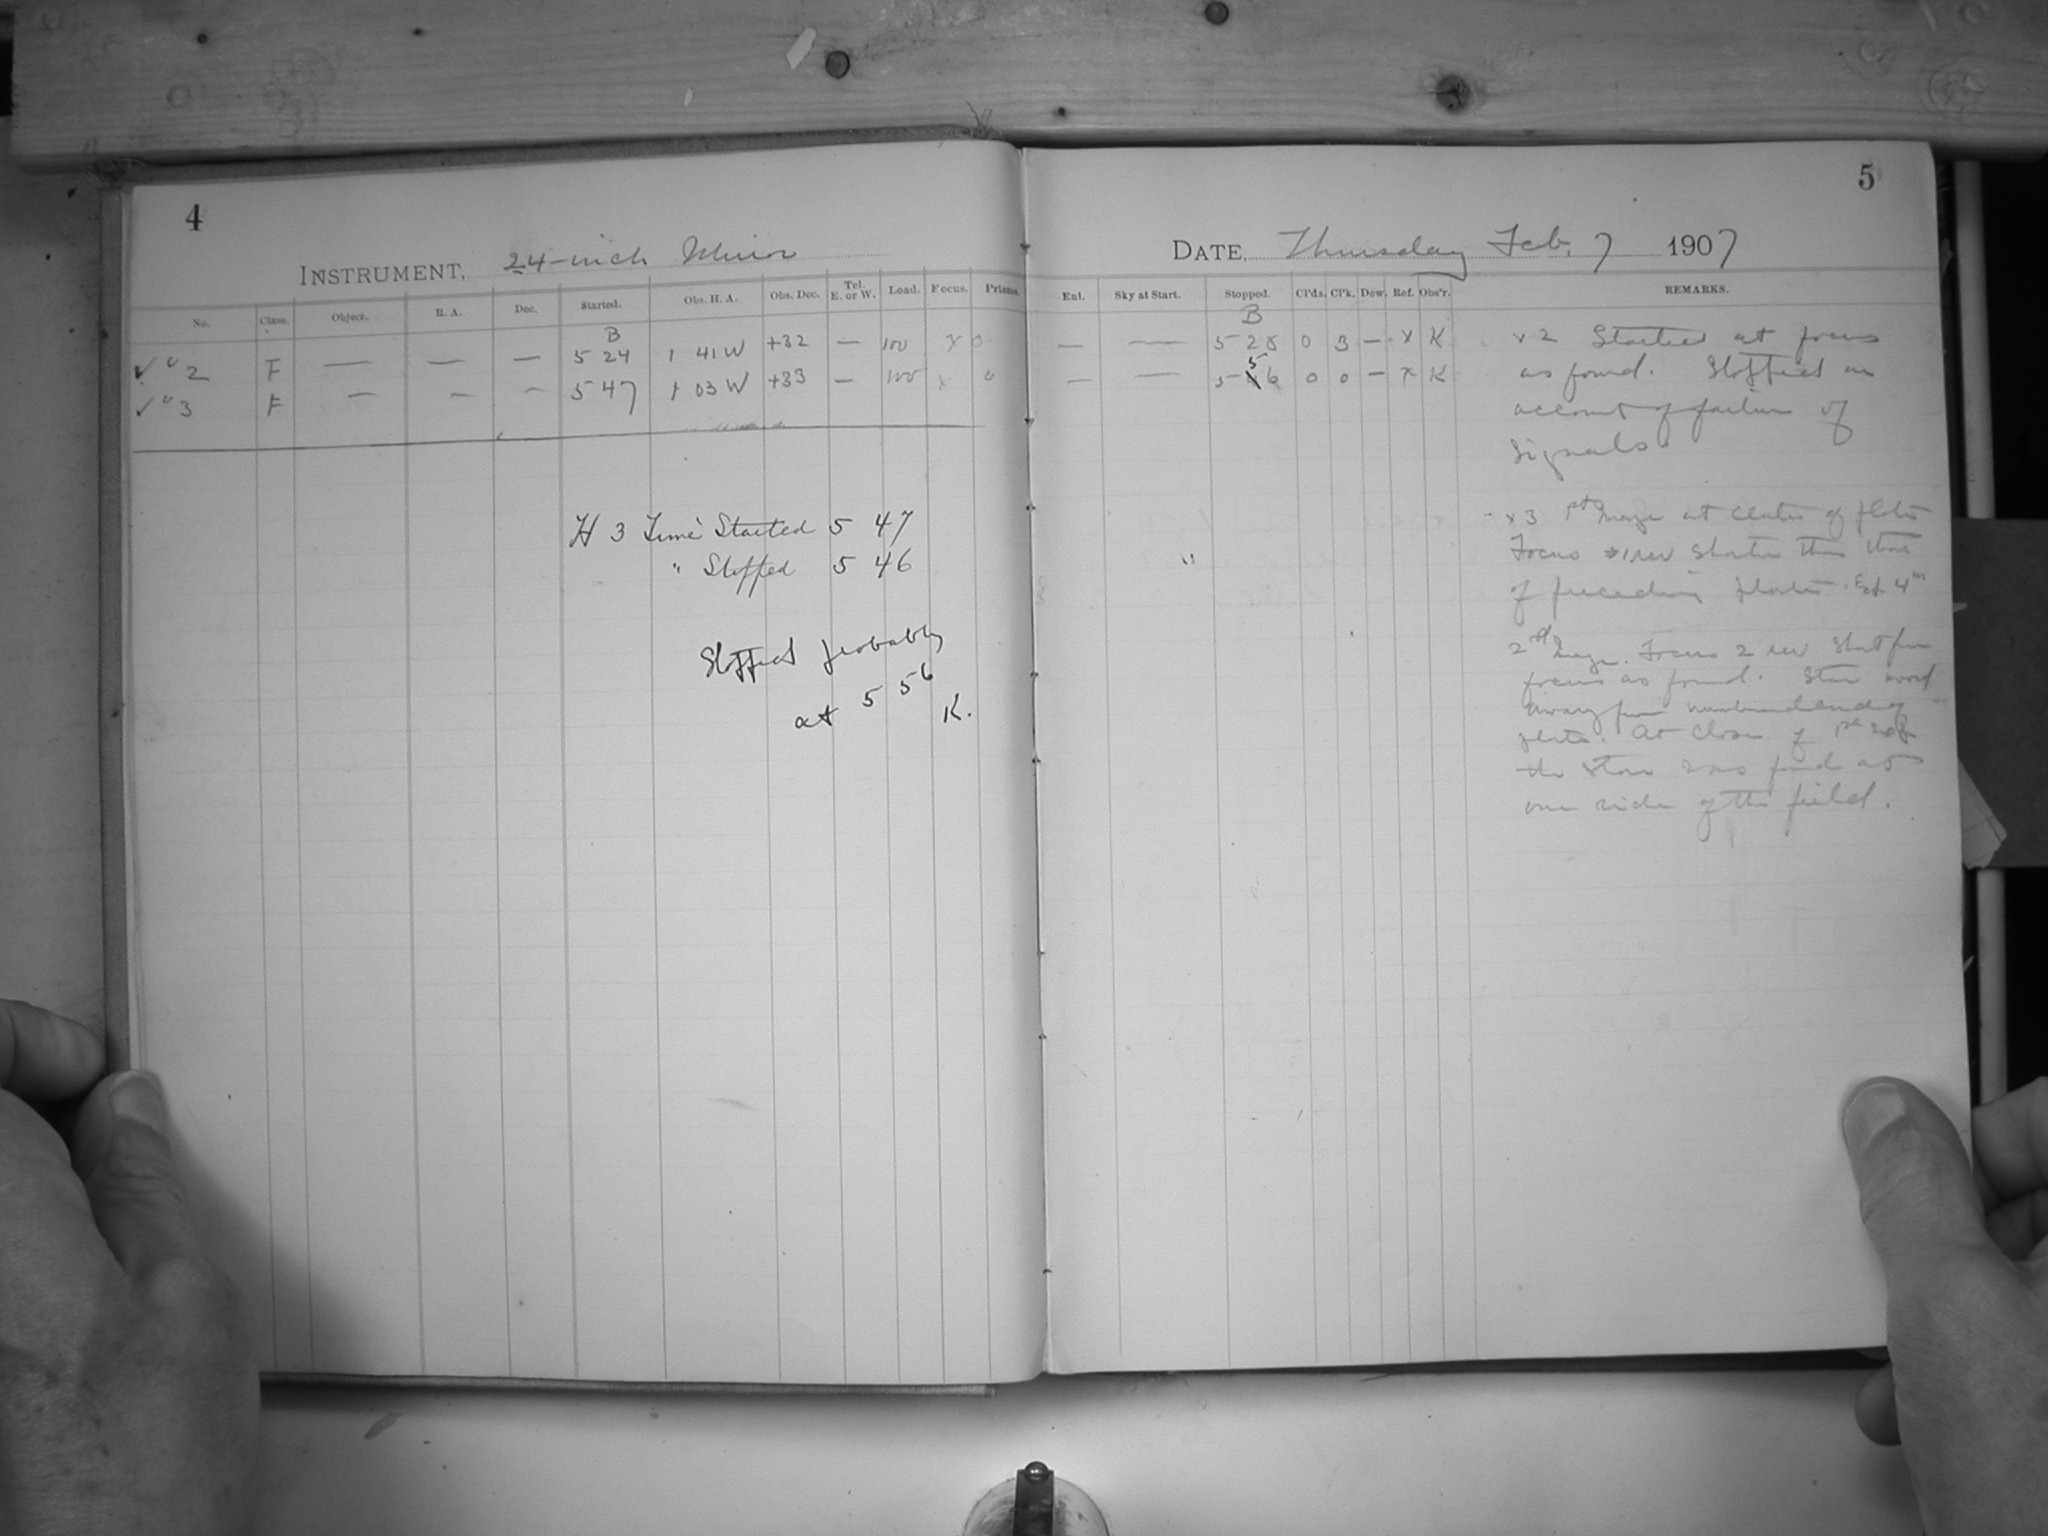 4
INSTRUMENT, 24-inch Mirror
No. Class. Object. R. A. Dec. Started. Obs. H. A. Obs. Dec. Tel. E. or W. Load. Focus. Prisms.
B
✓ " 2 F — — — 5 24 1 41 W +32 — 100 x 0
✓ " 3 F — — — 5 47 1 03 W +33 — 100 x 0
H 3 Time Started 5 47
" Stopped 5 46
Stopped probably
at 5 56
K.
5
DATE, Thursday Feb. 7 1907
Ent. Sky at Start. Stopped. Cl'ds. Cl'k. Dew. Ref. Obs'r. REMARKS.
B
— — 5 28 0 3 — x K
— — 5 56 0 0 — x K
x 2 Started at focus
as found. Stopped on
account of failure of
signals.
x 3 1st Image at center of plate
Focus 1 rev shorter than that
of preceding plate. Ex 4m
2d Image. Focus 2 rev short from
focus as found. Star moved
away from numbered end of
plate. At close of 1st
the star was found at
one side of the field.